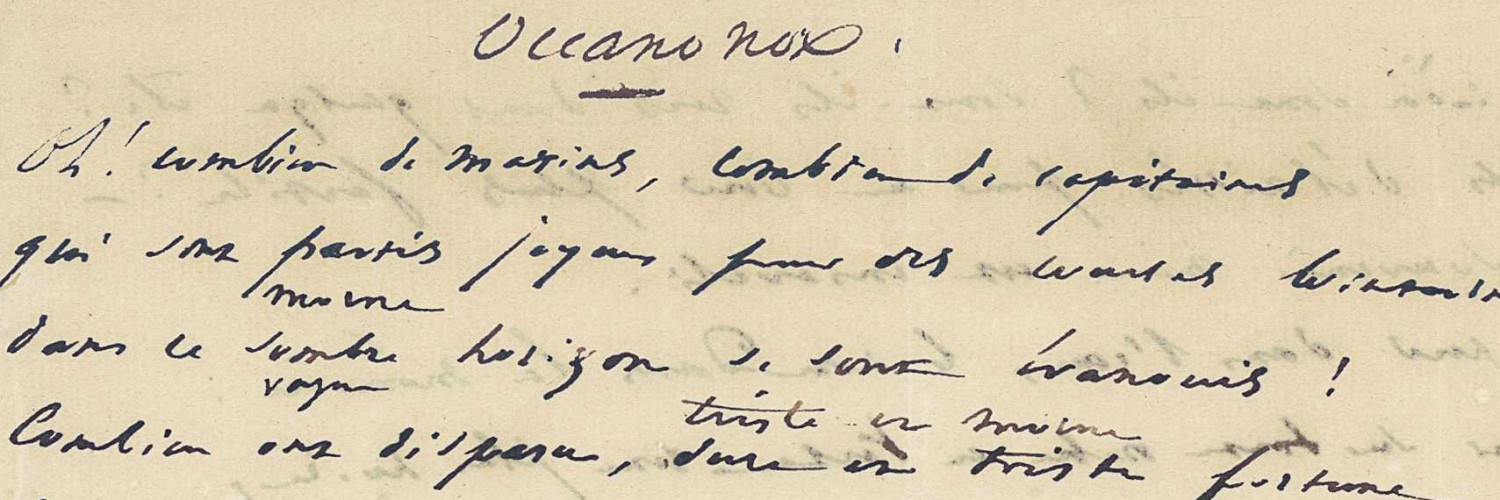 Oceano nox.
Oh! combien de marins, combien de capitaines
qui sont partis joyeux pour des courses lointain
morne
dans ce sombre horizon se sont évanouis !
vague
triste et morne
Combien ont disparu, dure et triste fortune